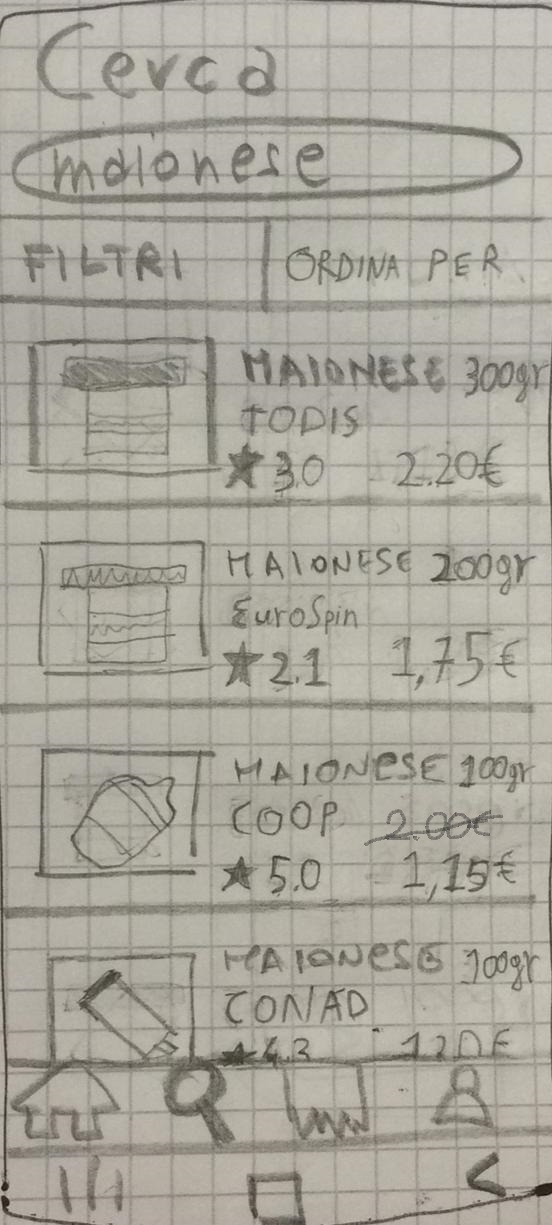 Cerca
maionese
FILTRI ORDINA PER
MAIONESE 300gr
TODIS
★ 3.0 2.20€
MAIONESE 200gr
EuroSpin
★ 2.1 1,75€
MAIONESE 100gr
COOP 2.00€
★ 5.0 1,15€
MAIONESE 100gr
CONAD
★ 4.3